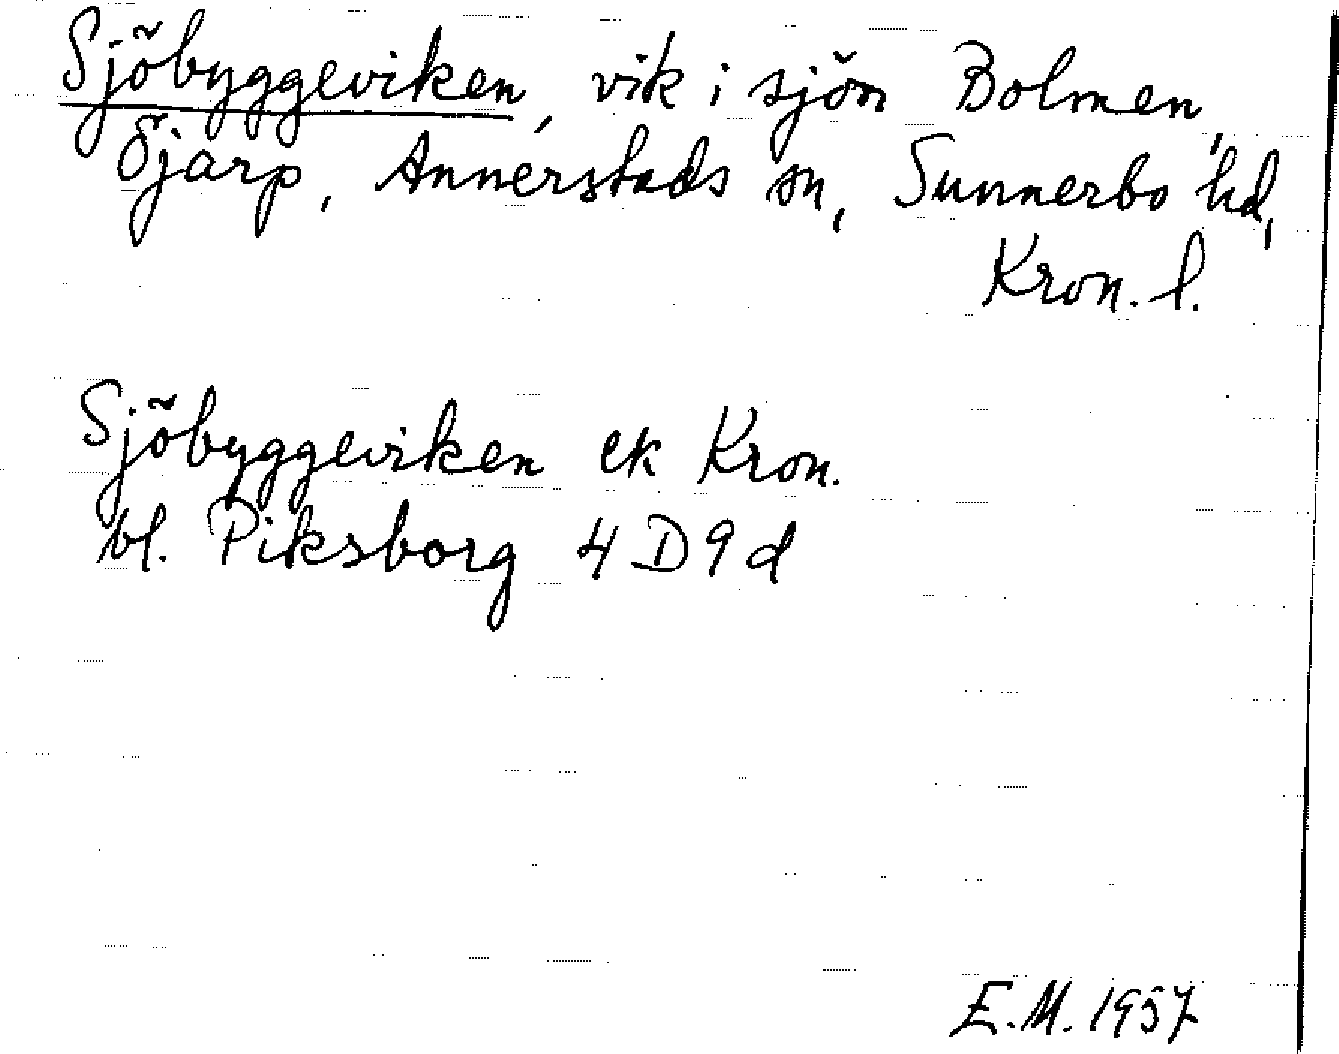 Sjöbyggeviken, vik i sjön Bolmen,
Öjarp, Annerstads sn, Sunnerbo hd,
Kron. l.
Sjöbyggeviken ek Kron.
bl. Piksborg 4 D 9 d
E.M. 1957